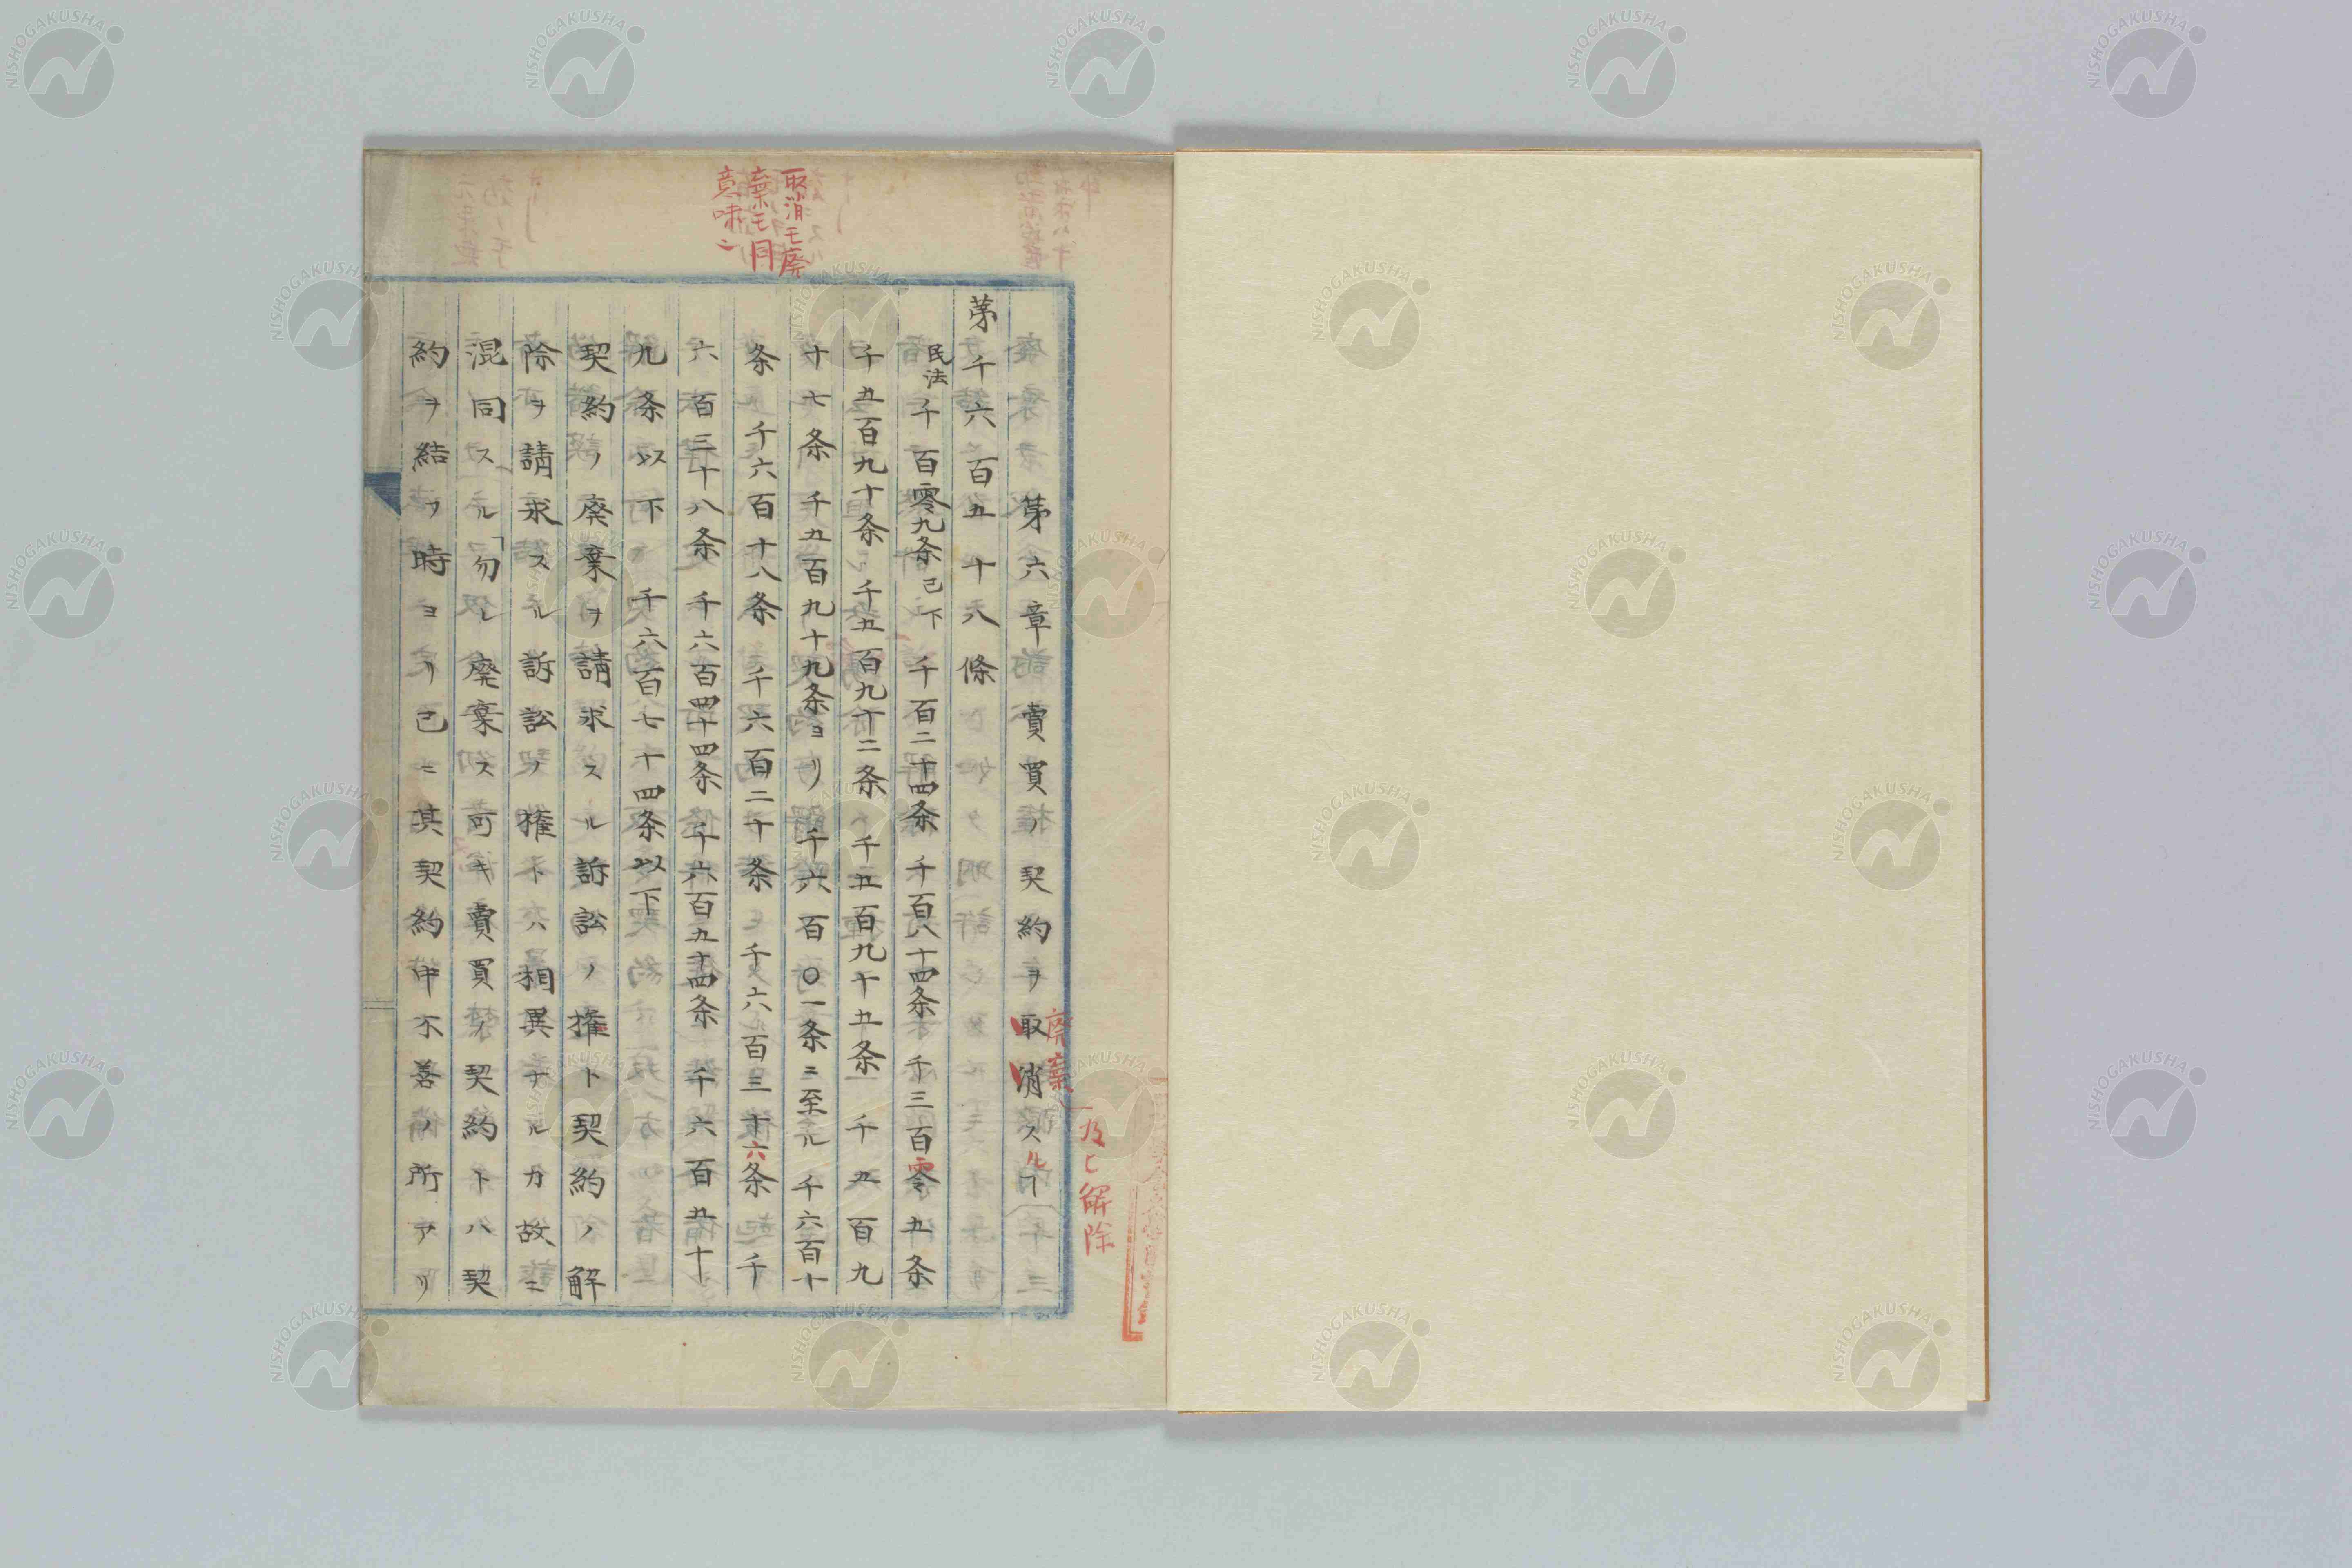 第六章賣買ノ契約ヲ取消スルヿ
廃棄
及ヒ解除
第千六百五十八條
民法千百零九条已下千百二十四条千百八十四条千三百零五条
千五百九十条千五百九十二条千五百九十五条千五百九
十七条千五百九十九条ヨリ千六百〇一条ニ至ル千六百十
条千六百十八条千六百二十条千六百三十六条千
六百三十八条千六百四十四条千六百五十四条千六百五十
九条以下千六百七十四条以下
契約ノ廃棄ヲ請求スル訴訟ノ権ト契約ノ解
除ヲ請求スル訴訟ノ権トハ相異ナルカ故ニ
混同スル「勿レ廃棄ス可キ賣買ノ契約トハ契
約ヲ結フ時ヨリ已ニ其契約中不善ノ所アリ
取消モ廃
棄モ同
意味ニ
NISHOGAKUSHA